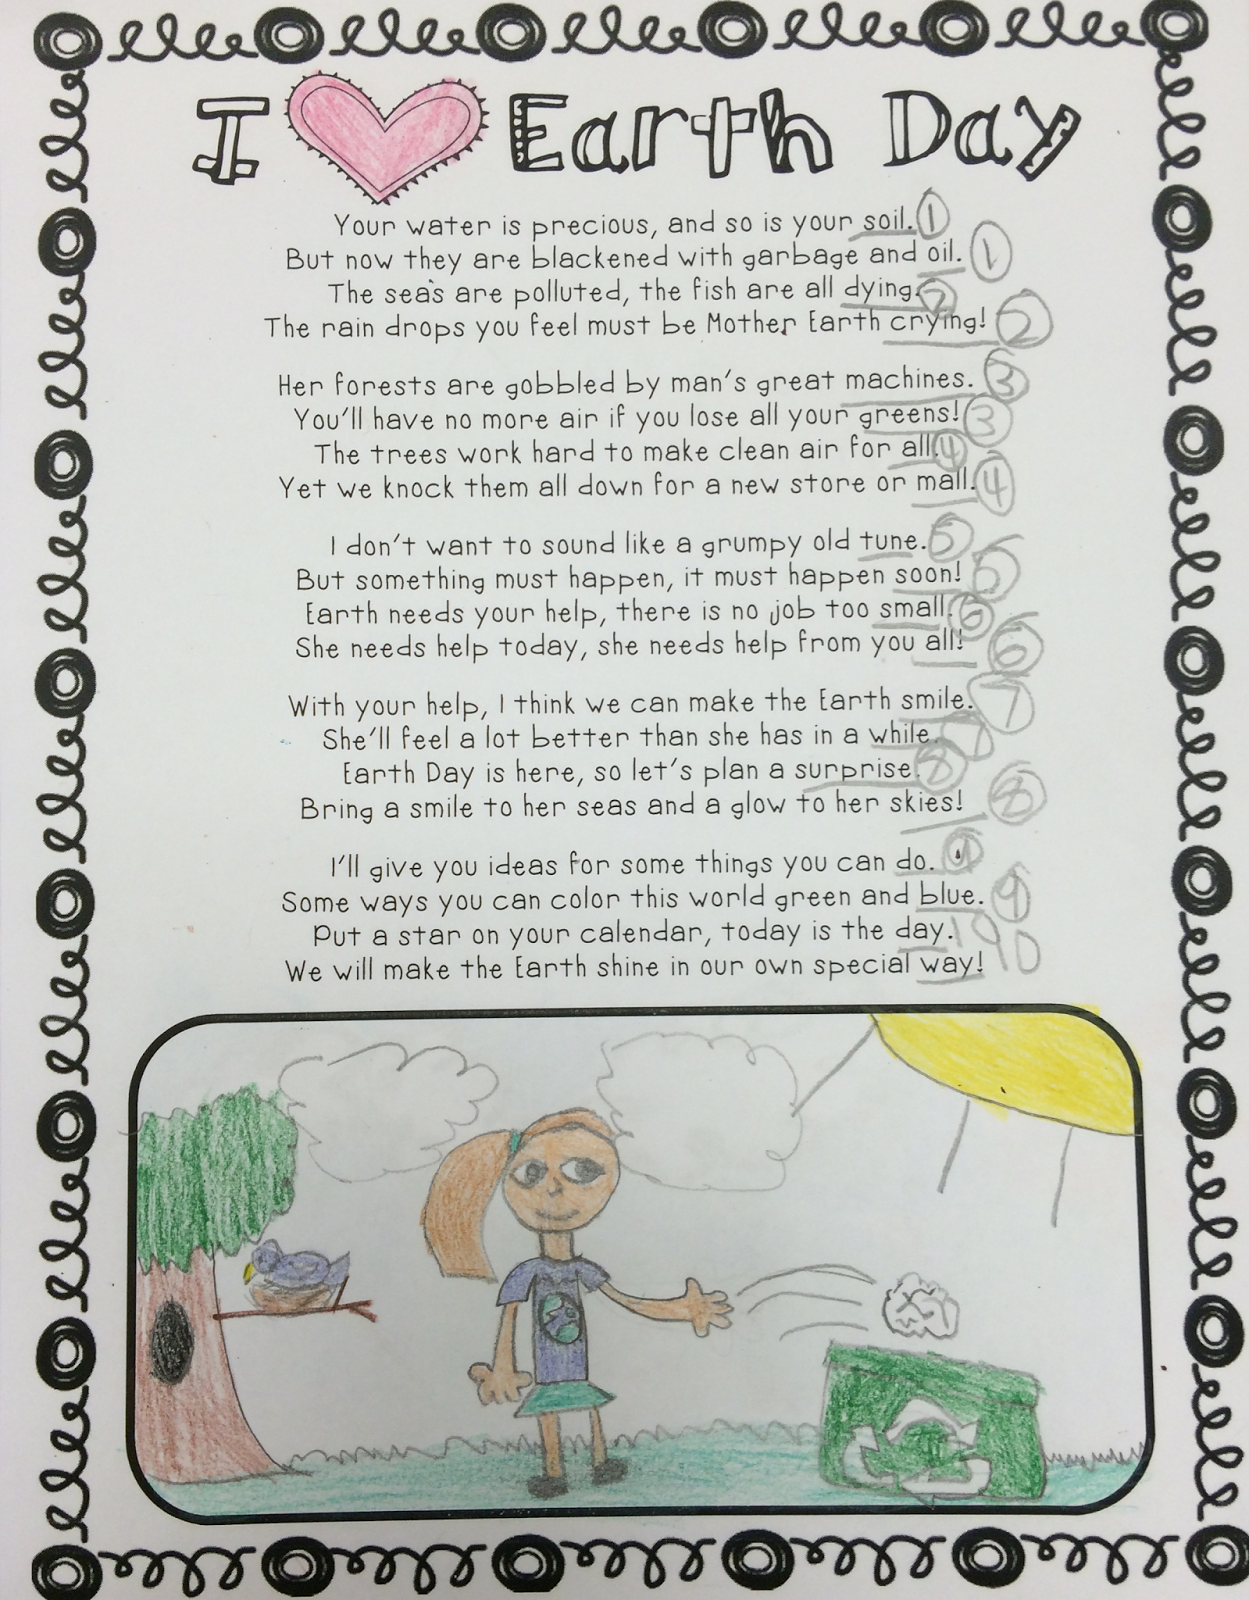 I Earth Day
Your water is precious, and so is your soil. 1
But now they are blackened with garbage and oil. 1
The seas are polluted, the fish are all dying. 2
The rain drops you feel must be Mother Earth crying! 2
Her forests are gobbled by man's great machines. 3
You'll have no more air if you lose all your greens! 3
The trees work hard to make clean air for all. 4
Yet we knock them all down for a new store or mall. 4
I don't want to sound like a grumpy old tune. 5
But something must happen, it must happen soon! 5
Earth needs your help, there is no job too small. 6
She needs help today, she needs help from you all! 6
With your help, I think we can make the Earth smile. 7
She'll feel a lot better than she has in a while. 7
Earth Day is here, so let's plan a surprise. 8
Bring a smile to her seas and a glow to her skies! 8
I'll give you ideas for some things you can do. 9
Some ways you can color this world green and blue. 9
Put a star on your calendar, today is the day.
We will make the Earth shine in our own special way!